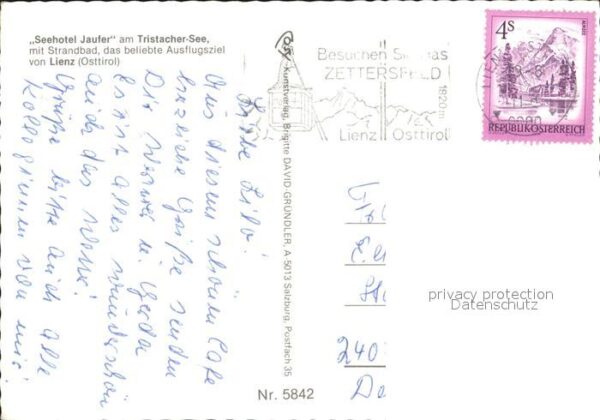 „Seehotel Jaufer" am Tristacher-See,
mit Strandbad, das beliebte Ausflugsziel
von Lienz (Osttirol)
Besuchen Sie das
ZETTERSFELD
1820m
Lienz Osttirol
4S
REPUBLIK ÖSTERREICH
Kunstverlag, Brigitte DAVID-GRÜNDLER, A-5013 Salzburg, Postfach 35
Nr. 5842
Liebe Lilo!
Aus diesem schönen
herzliche Grüße senden
Dir Werner u. Gerda
Ernst alles wunderschön
auch das
Grüße bitte auch alle
Kolleginnen von mir!
240
privacy protection
Datenschutz